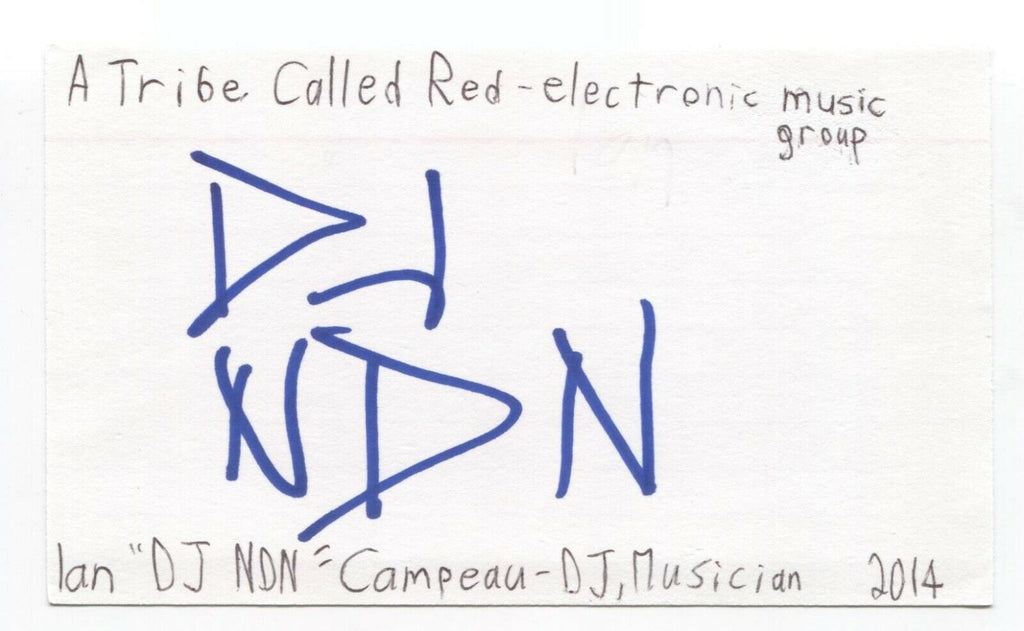 A Tribe Called Red - electronic music
group
DJ
NDN
Ian "DJ NDN" Campeau - DJ, Musician 2014